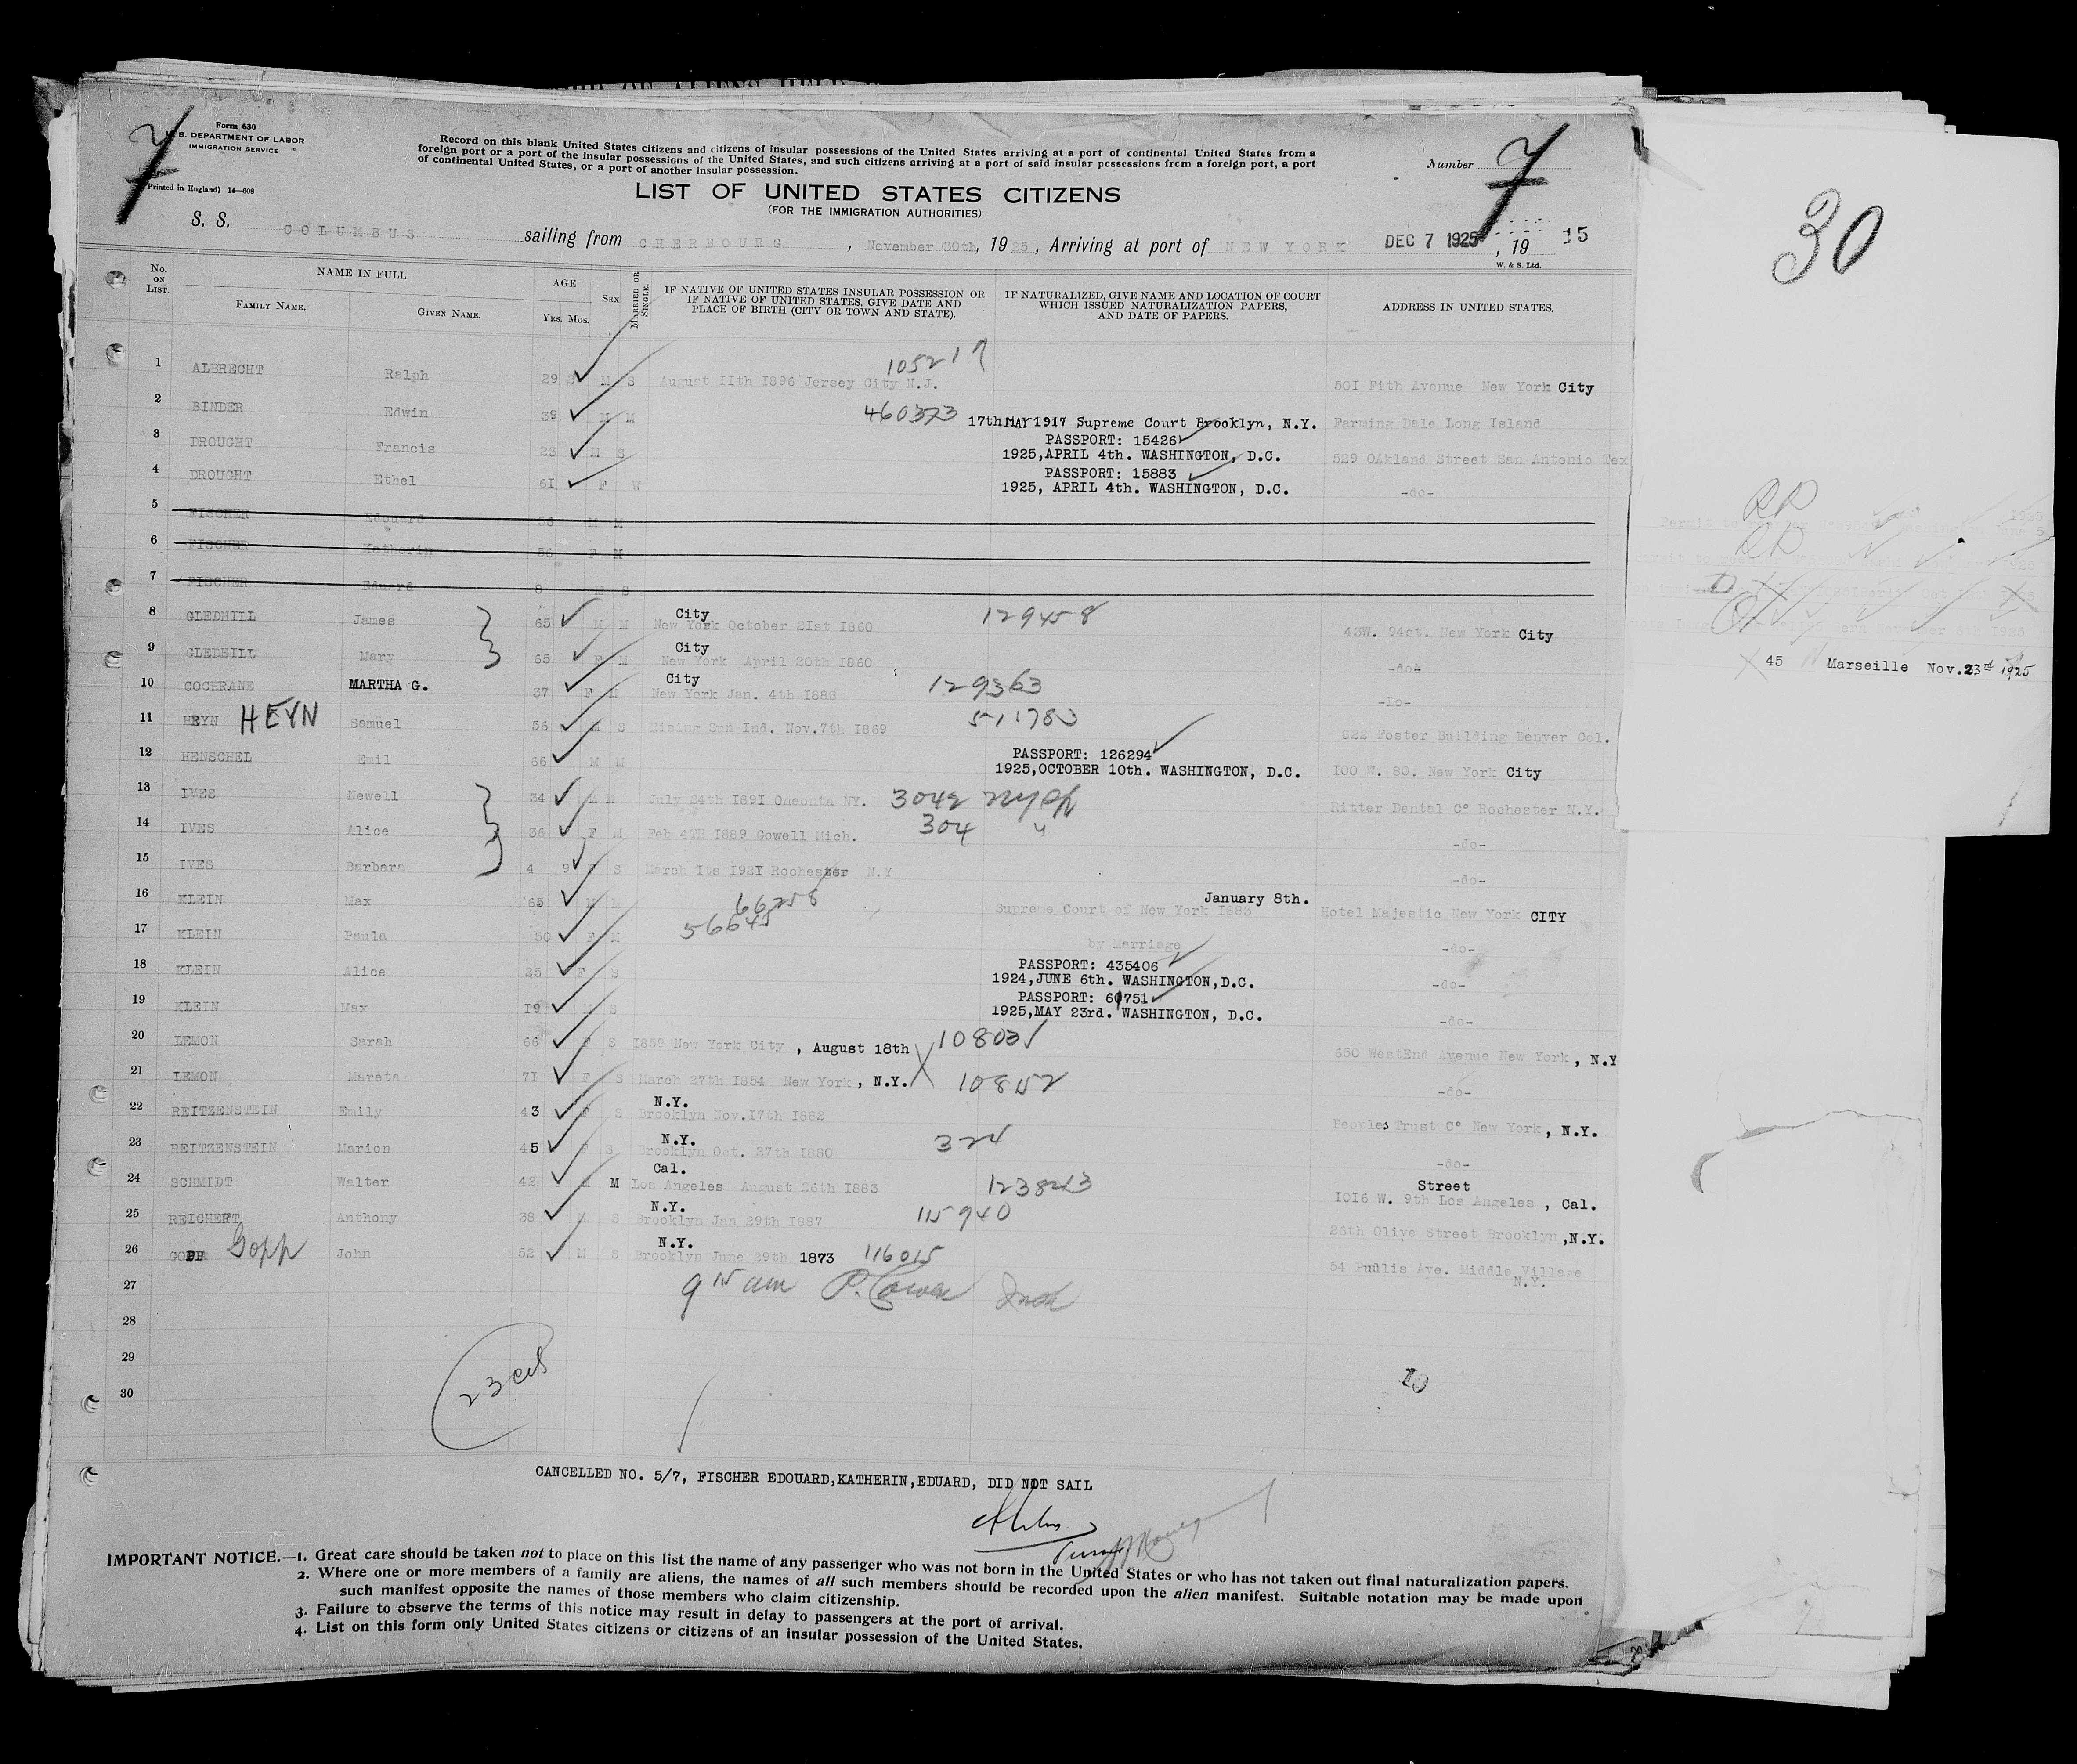 Form 630
U. S. DEPARTMENT OF LABOR
IMMIGRATION SERVICE
Printed in England) 14—608
7
Record on this blank United States citizens and citizens of insular possessions of the United States arriving at a port of continental United States from a
foreign port or a port of the insular possessions of the United States, and such citizens arriving at a port of said insular possessions from a foreign port, a port
of continental United States, or a port of another insular possession.
Number 7
LIST OF UNITED STATES CITIZENS
(FOR THE IMMIGRATION AUTHORITIES)
S. S. COLUMBUS sailing from CHERBOURG, November 30th, 1925, Arriving at port of NEW YORK DEC 7 1925, 19 15
W. & S. Ltd.
No. ON LIST. NAME IN FULL FAMILY NAME. GIVEN NAME. AGE YRS. MOS. SEX. MARRIED OR SINGLE. IF NATIVE OF UNITED STATES INSULAR POSSESSION OR IF NATIVE OF UNITED STATES, GIVE DATE AND PLACE OF BIRTH (CITY OR TOWN AND STATE). IF NATURALIZED, GIVE NAME AND LOCATION OF COURT WHICH ISSUED NATURALIZATION PAPERS, AND DATE OF PAPERS. ADDRESS IN UNITED STATES.
1 ALBRECHT Ralph 29 M S August 11th 1896 Jersey City N.J. 105217 501 Fith Avenue New York City
2 BINDER Edwin 39 M M 460373 17th MAY 1917 Supreme Court Brooklyn, N.Y. Farming Dale Long Island
3 DROUGHT Francis 23 M S PASSPORT: 15426 1925,APRIL 4th. WASHINGTON, D.C. 529 OAkland Street San Antonio Tex
4 DROUGHT Ethel 61 F W PASSPORT: 15883 1925, APRIL 4th. WASHINGTON, D.C. -do-
5 FISCHER Edouard M M
6 FISCHER Katherin 56 F M
7 FISCHER Eduard 8 M S
8 GLEDHILL James 65 M M City New York October 21st 1860 129458 43W. 94st. New York City
9 GLEDHILL Mary 65 F M City New York April 20th 1860 -do-
10 COCHRANE MARTHA G. 37 F M City New York Jan. 4th 1888 129363 -Do-
11 HEYN HEYN Samuel 56 M S Rising Sun Ind. Nov.7th 1869 511783 822 Foster Building Denver Col.
12 HENSCHEL Emil 66 M M PASSPORT: 126294 1925,OCTOBER 10th. WASHINGTON, D.C. 100 W. 80. New York City
13 IVES Newell 34 M M July 24th 1891 Oneonta NY. 3042 Ritter Dental Co Rochester N.Y.
14 IVES Alice 36 F M Feb 4TH 1889 Gowell Mich. 304 " -do-
15 IVES Barbara 4 9 F S March 1ts 1921 Rochester N.Y -do-
16 KLEIN Max 65 M M 66258 January 8th. Supreme Court of New York 1883 Hotel Majestic New York CITY
17 KLEIN Paula 50 F M 56645 by Marriage -do-
18 KLEIN Alice 25 F S PASSPORT: 435406 1924,JUNE 6th. WASHINGTON,D.C. -do-
19 KLEIN Max 19 M S PASSPORT: 60751 1925,MAY 23rd. WASHINGTON, D.C. -do-
20 LEMON Sarah 66 F S 1859 New York City , August 18th 10803 650 WestEnd Avenue New York, N.Y
21 LEMON Mareta 71 F S March 27th 1854 New York, N.Y. 10852 -do-
22 REITZENSTEIN Emily 43 F S N.Y. Brooklyn Nov.17th 1882 Peoples Trust Co New York, N.Y.
23 REITZENSTEIN Marion 45 F S N.Y. Brooklyn Oct. 27th 1880 324 -do-
24 SCHMIDT Walter 42 M M Cal. Los Angeles August 26th 1883 123843 Street 1016 W. 9th Los Angeles , Cal.
25 REICHERT Anthony 38 M S N.Y. Brooklyn Jan 29th 1887 115940 26th Olive Street Brooklyn ,N.Y.
26 GOPP Gopp John 52 M S N.Y. Brooklyn June 29th 1873 116015 54 Pullis Ave. Middle Village N.Y.
27 9 15 am P. Cowen Insp
28
29
30
23
10
CANCELLED NO. 5/7, FISCHER EDOUARD,KATHERIN,EDUARD, DID NOT SAIL
IMPORTANT NOTICE.—1. Great care should be taken not to place on this list the name of any passenger who was not born in the United States or who has not taken out final naturalization papers.
2. Where one or more members of a family are aliens, the names of all such members should be recorded upon the alien manifest. Suitable notation may be made upon
such manifest opposite the names of those members who claim citizenship.
3. Failure to observe the terms of this notice may result in delay to passengers at the port of arrival.
4. List on this form only United States citizens or citizens of an insular possession of the United States.
30
45 Marseille Nov.23rd 1925